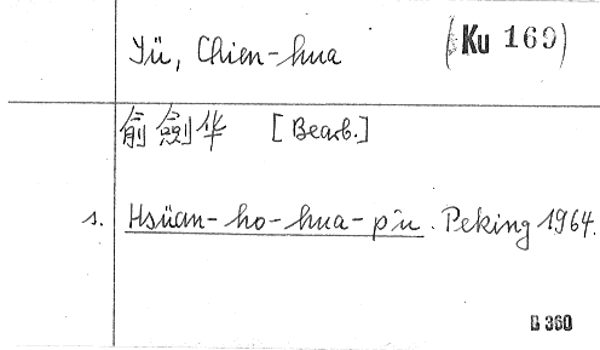 Yü, Chien-hua (Ku 169)
俞劍华 [Bearb.]
s. Hsüan-ho-hua-p'u. Peking 1964.
B 360